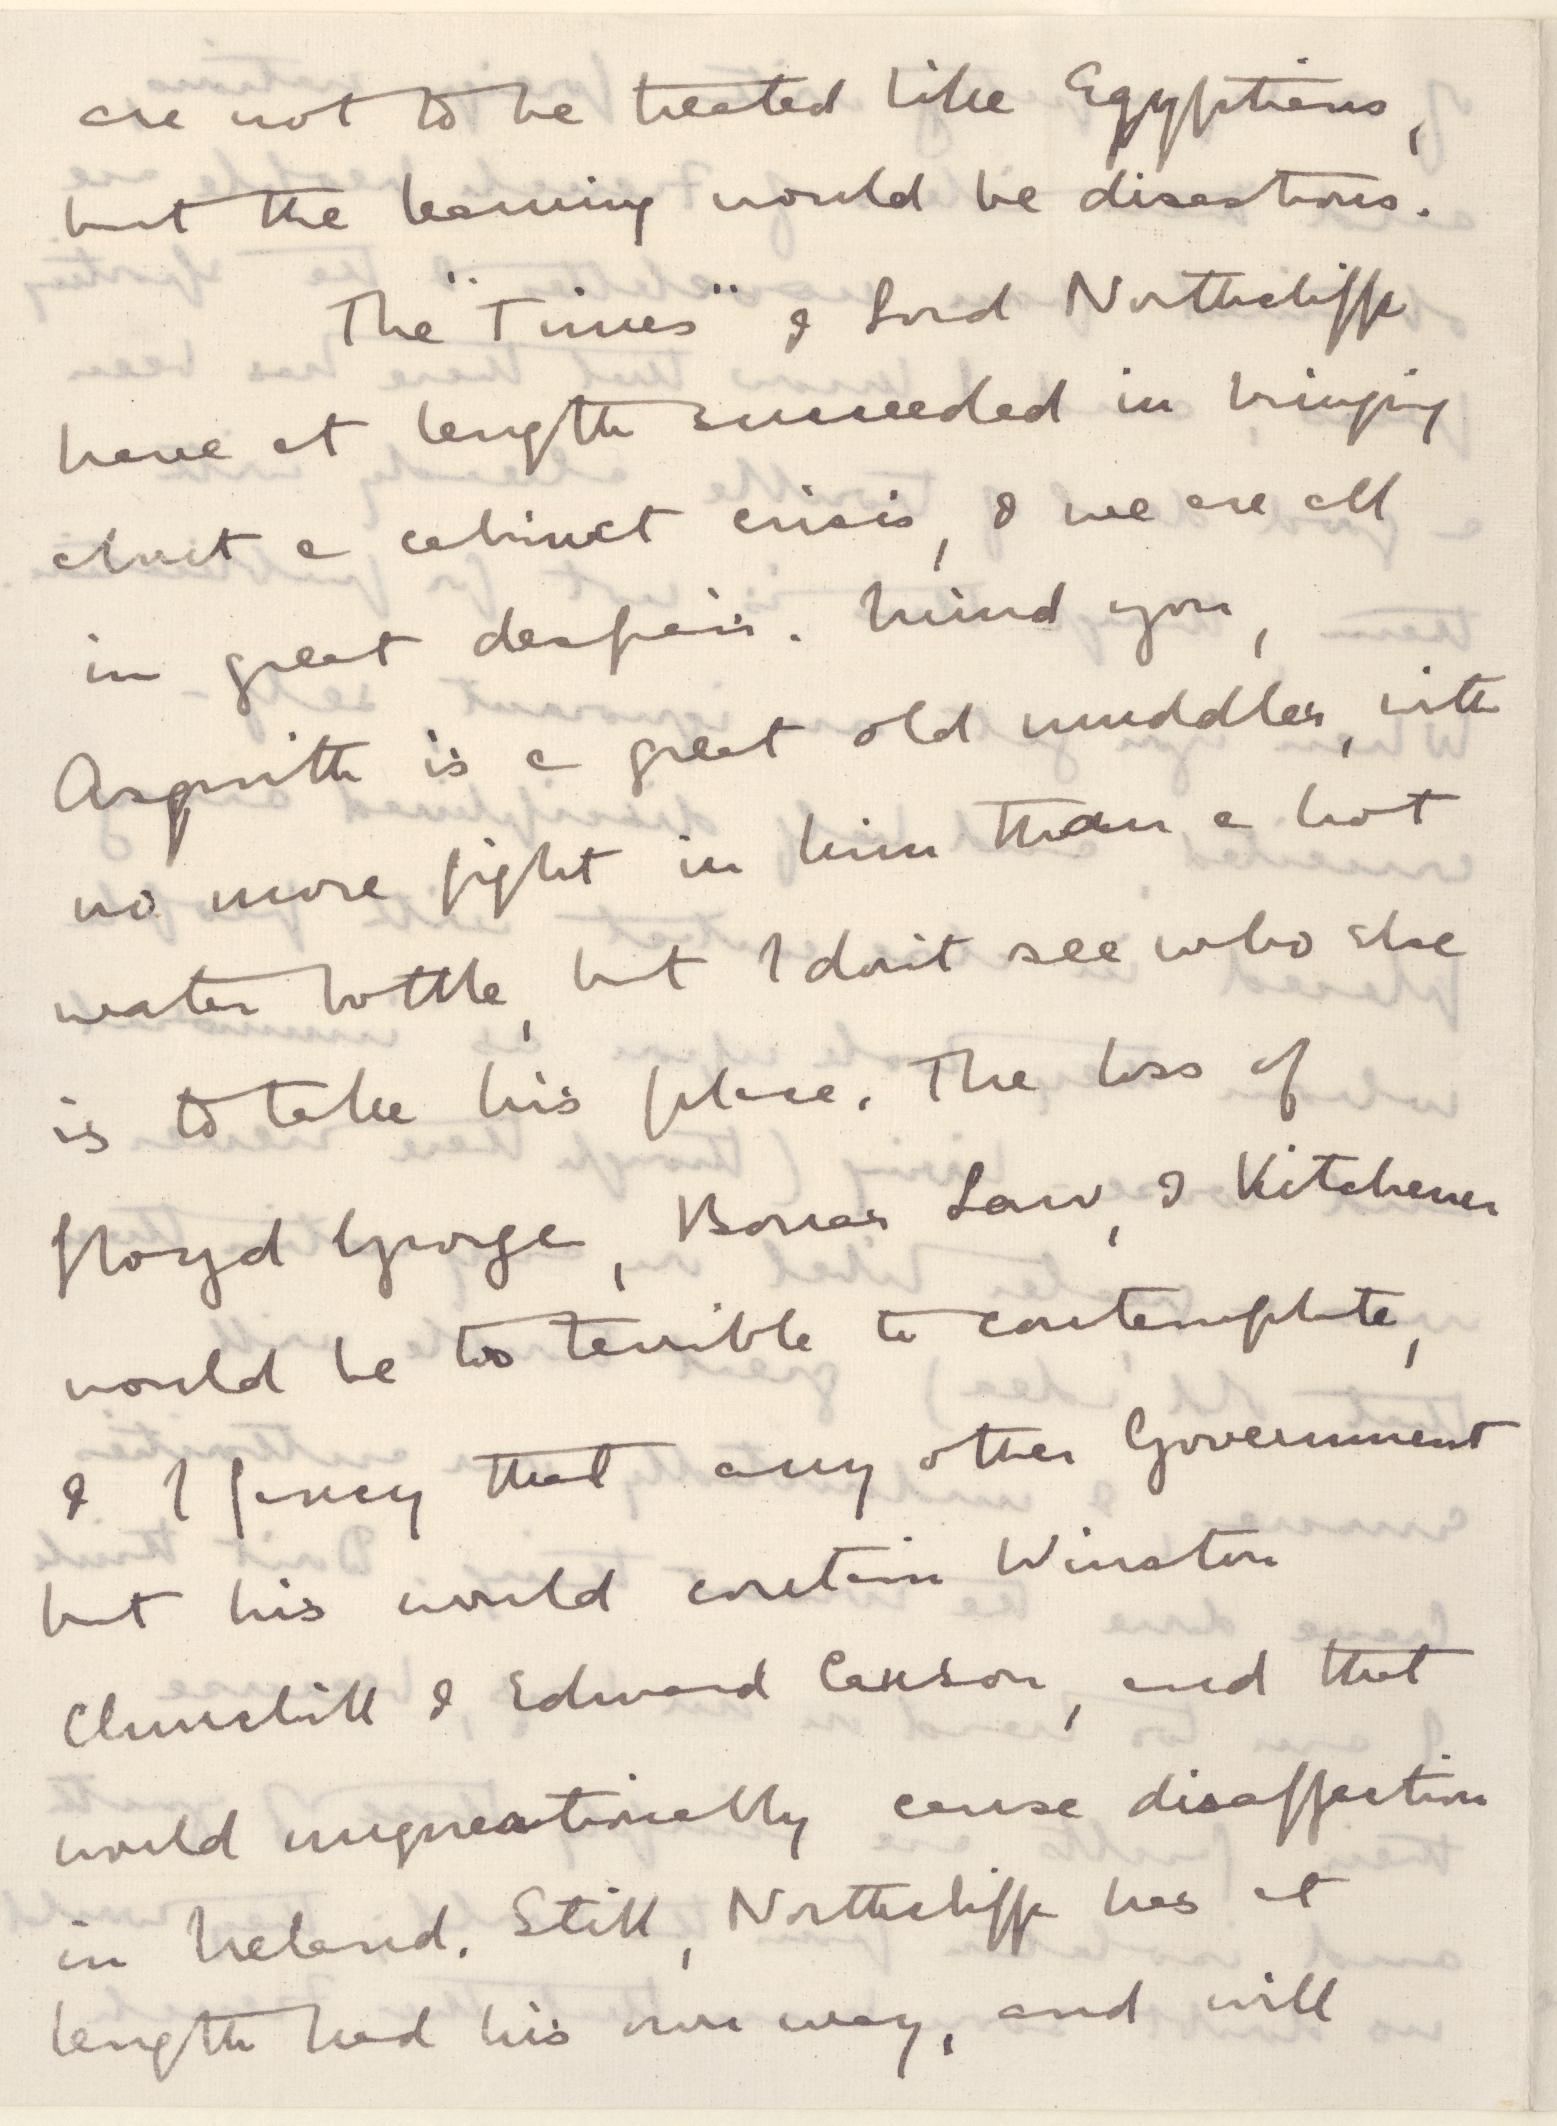 are not to be treated like Egyptians,
but the learning would be disastrous.
The "Times" & Lord Northcliffe
have at length succeeded in bringing
about a cabinet crisis, & we are all
in great despair. Mind you,
Asquith is a great old muddler, with
no more fight in him than a hot
water bottle, but I don't see who else
is to take his place. The loss of
Lloyd George, Bonar Law, & Kitchener
would be too terrible to contemplate,
& I fancy that any other Government
but his would contain Winston
Churchill & Edward Carson, and that
would unquestionably cause disaffection
in Ireland. Still, Northcliffe has at
length had his own way, and will